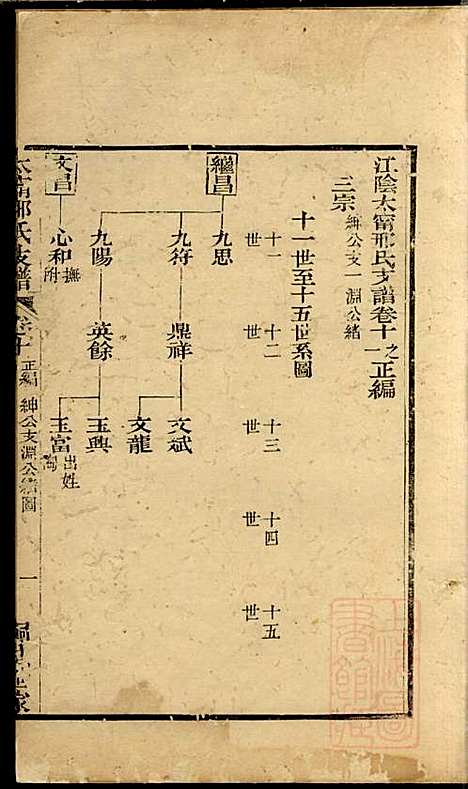 江陰太甯邢氏支譜卷十之一正編
三宗紳公支一淵公緒
十一世至十五世系圖
十一世
十二世
十三世
十四世
十五世
繼昌
九思
九符
鼎祥
文斌
文龍
九陽
英餘
玉興
玉富出姓
文昌
心和撫附
太甯邢氏支譜
卷十
正編
紳公支淵公緒圖
一